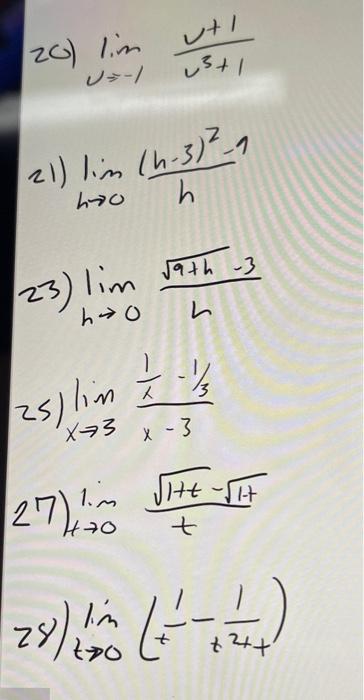 20) lim u→-1 (u+1)/(u³+1)
21) lim h→0 ((h-3)²-9)/h
23) lim h→0 (√(9+h) -3)/h
25) lim x→3 (1/x - 1/3)/(x-3)
27) lim t→0 (√(1+t) - √(1-t))/t
28) lim t→0 (1/t - 1/(t²+t))